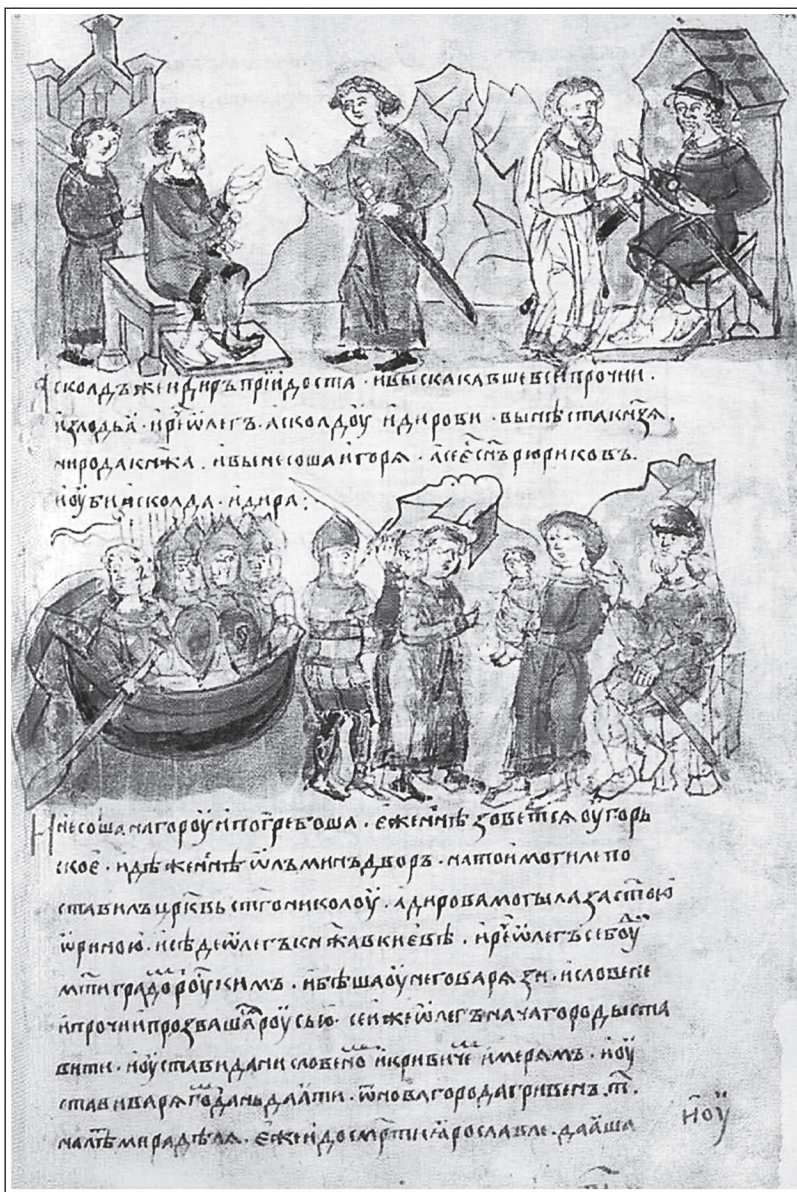 Асколдъ же и диръ придоста · и выскакавше вси прочии ·
из лодьӕ · и рѣ ѡлегъ · асколдоу и дирови · вы нѣста кнѧзѧ ·
ни рода кнѧжа · и вынесоша игорѧ · а се е снъ рюриковъ ·
и оуби асколда · и дира :
И несоша на гороу и погребоша · еже ннѣ зоветсѧ оугорь
ское · идѣже ннѣ ѡлъминъ дворъ · на тои могиле по
ставилъ црквь стго николоу · а дирова могыла за стою
ѡриною · и сѣде ѡлегъ кнѧжа в киевѣ · и рѣ ѡлегъ се боуд
мти градо роускимъ · и бѣша оу него варѧзи · и словене
и прочии прозвашасѧ роусью · сеи же ѡлегъ нача городы ста
вити · и оустави дани словено и кривиче и мерѧмъ · и оу
стави варѧго дань даӕти · ѿ новагорода гривенъ · т ·
на лѣ мира дѣлѧ · еже и до смрти ӕрославле · даӕша
ноу